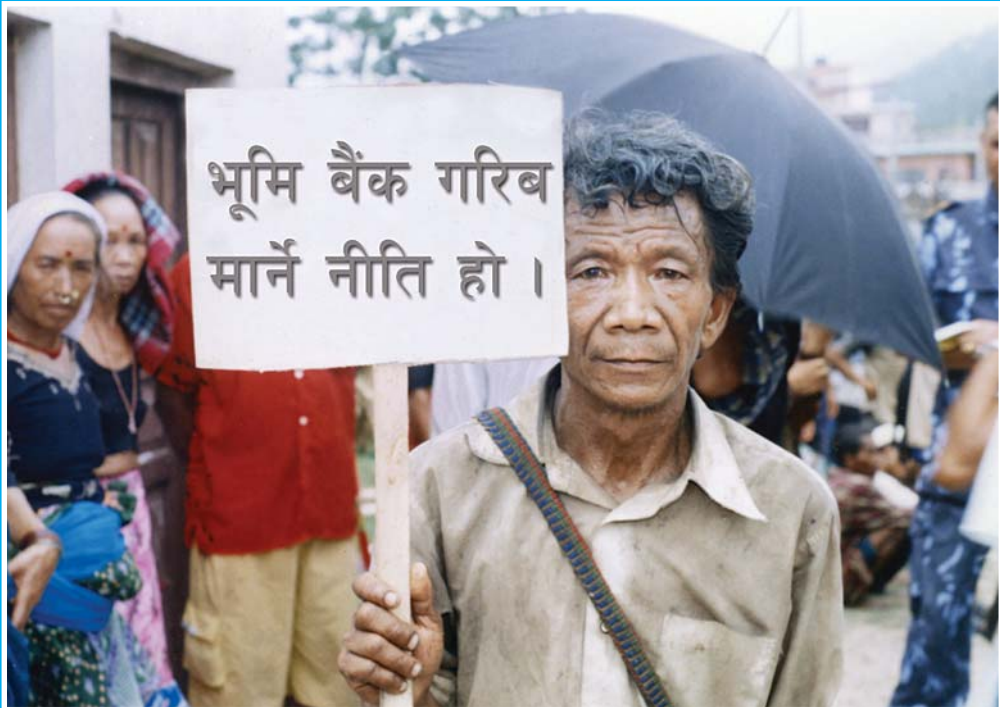 भूमि बैंक गरिब
मार्ने नीति हो ।